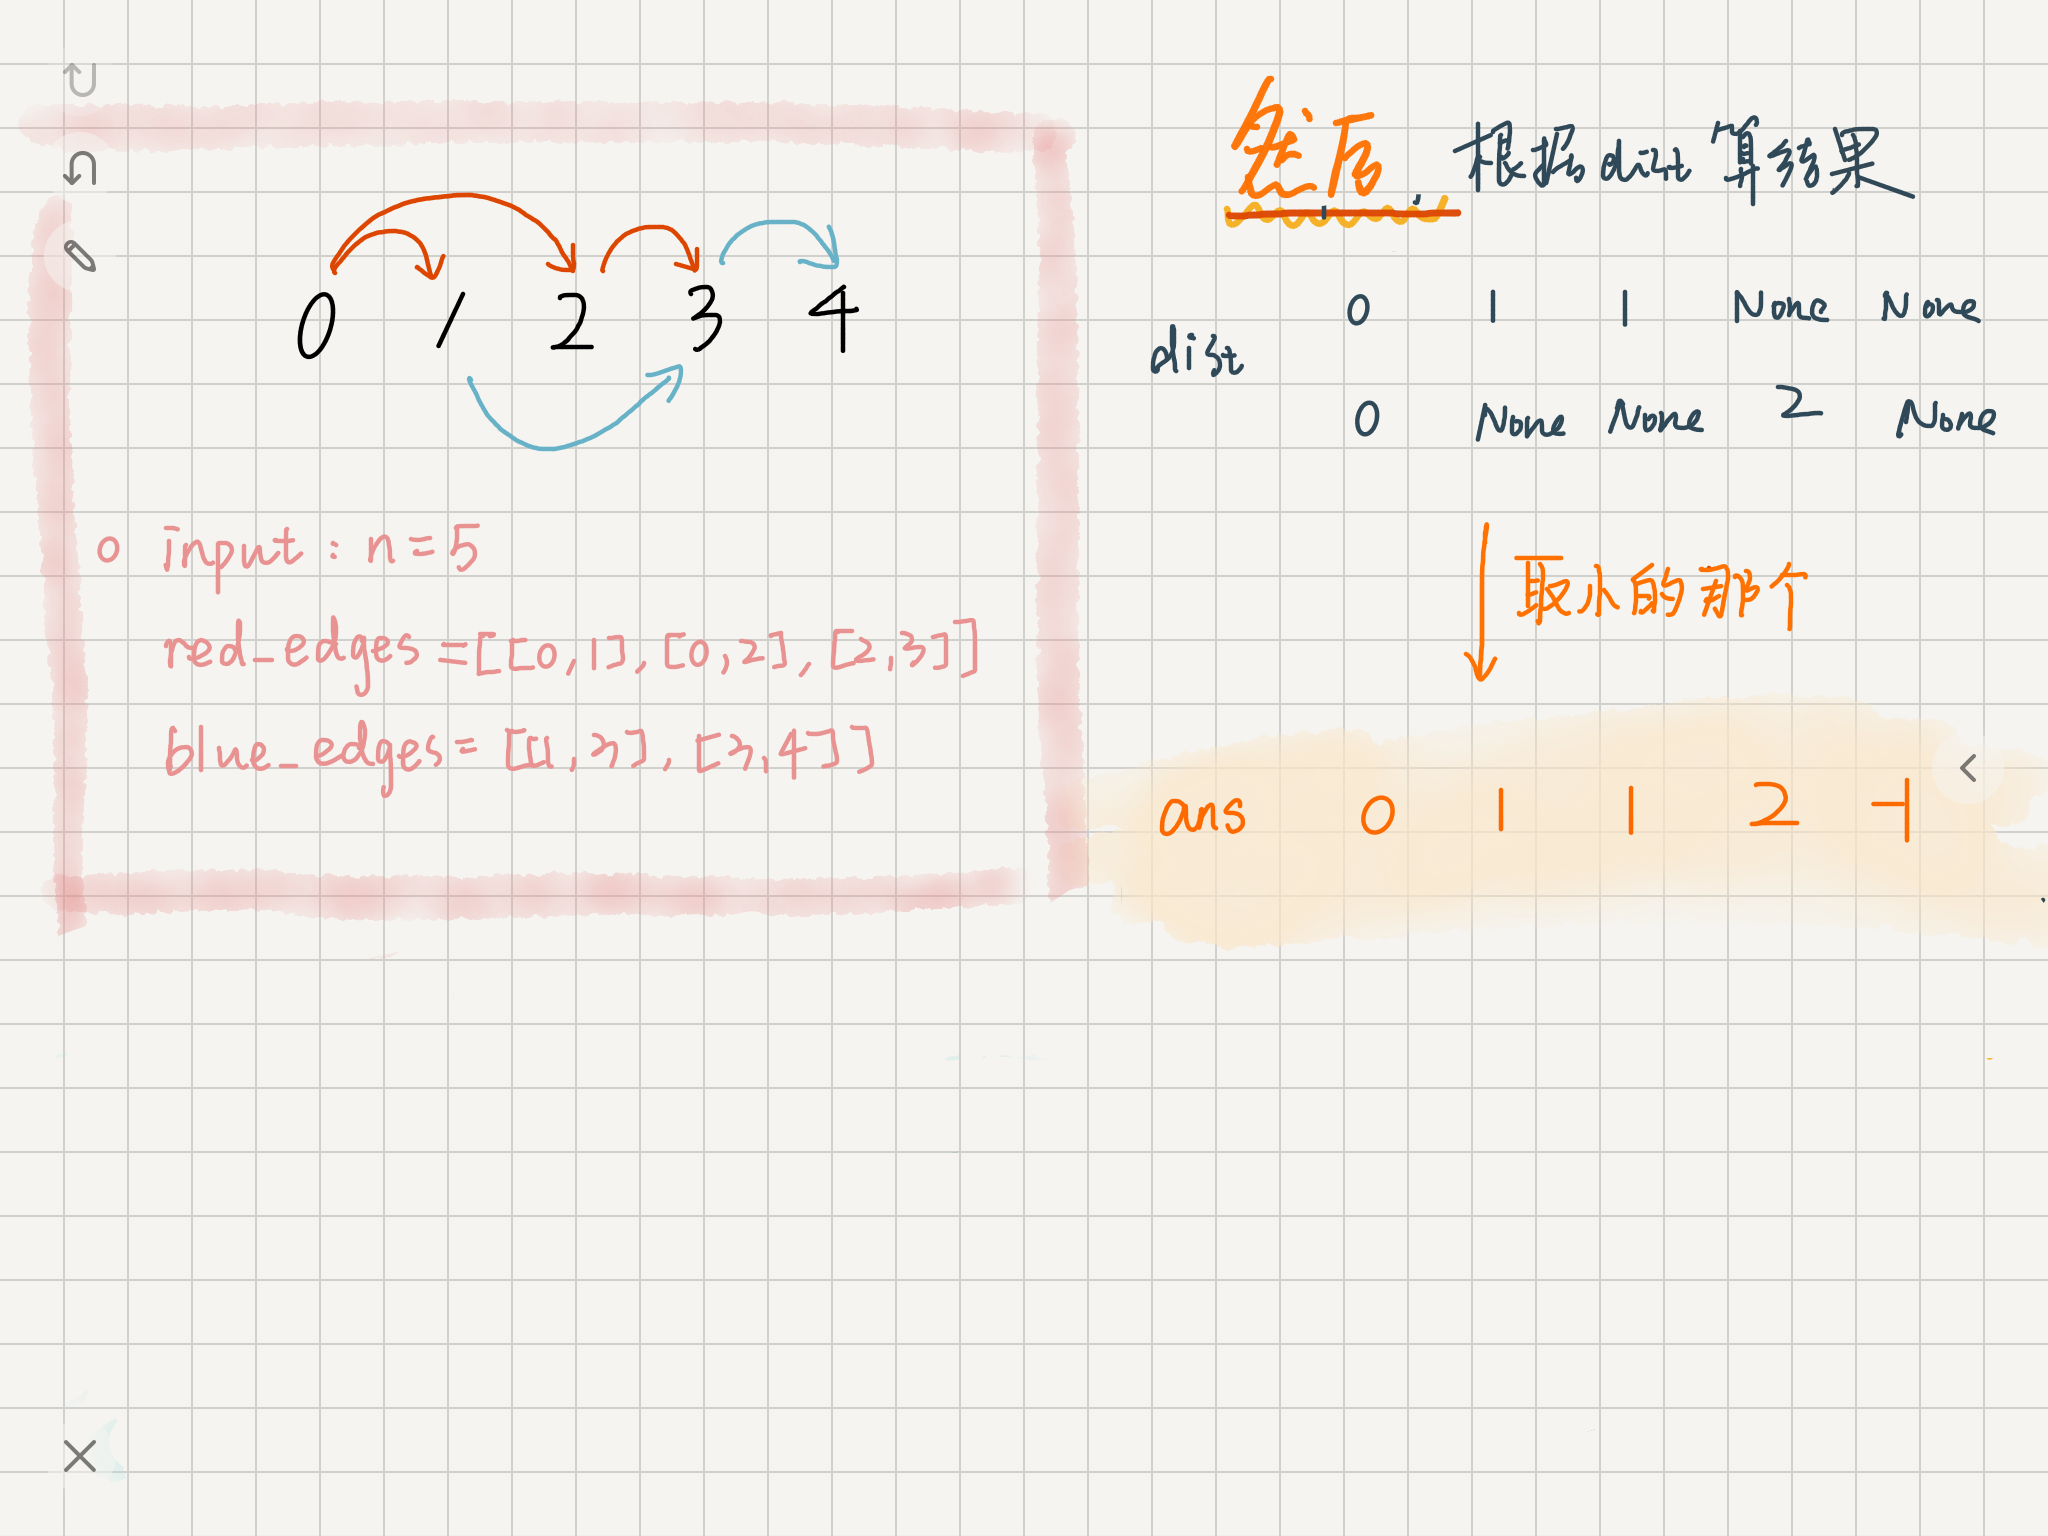 0 1 2 3 4
o input : n = 5
red_edges = [[0,1], [0,2], [2,3]]
blue_edges = [[1,3], [3,4]]
然后, 根据 dist 算结果
dist
0 1 1 None None
0 None None 2 None
取小的那个
ans 0 1 1 2 -1